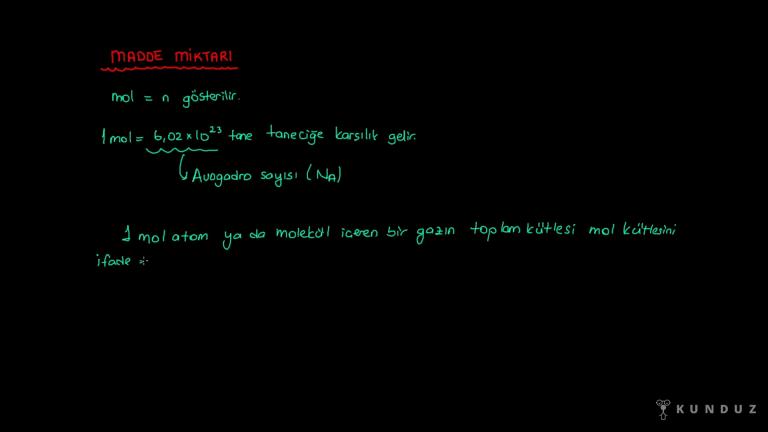 MADDE MİKTARI
mol = n gösterilir.
1 mol = 6,02 x 10²³ tane taneciğe karşılık gelir.
Avogadro sayısı (NA)
1 mol atom ya da molekül içeren bir gazın toplam kütlesi mol kütlesini
ifade
KUNDUZ